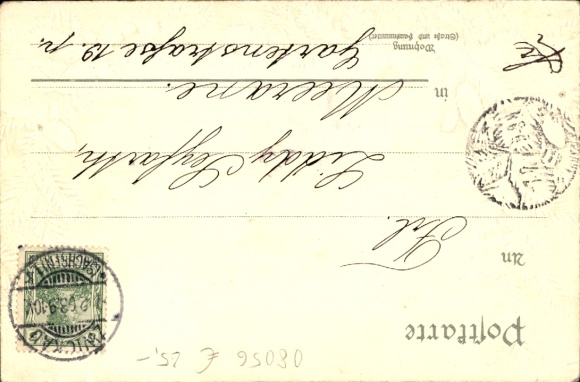 Postkarte
An
Frl.
Liddy Seyfarth,
in Meerane.
Wohnung
(Straße und Hausnummer)
Gartenstraße 19. pr.
ZWICKAU
(SACHSEN)
08056 £ 25,-